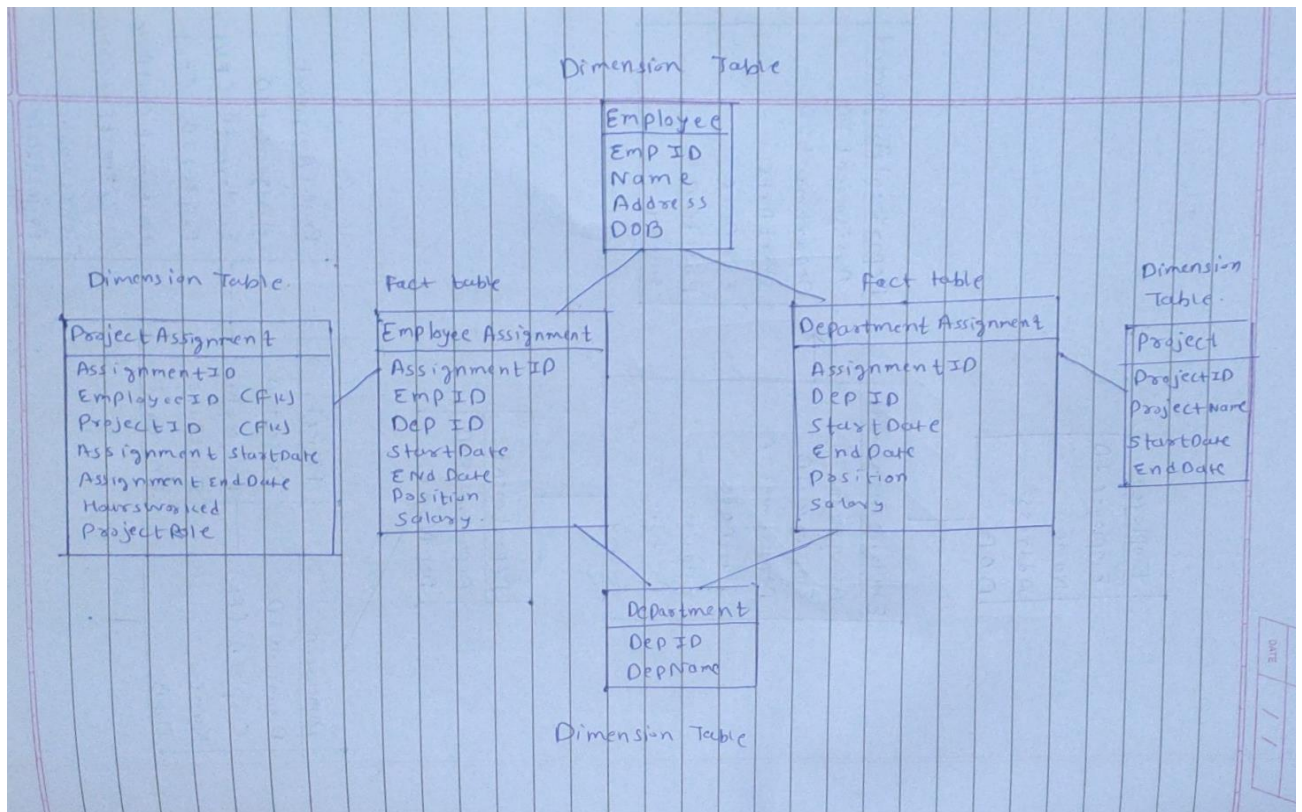 Dimension Table
Employee
Emp ID
Name
Address
DOB
Dimension Table.
Project Assignment
Assignment ID
Employee ID (FK)
Project ID (FK)
Assignment StartDate
Assignment EndDate
Hoursworked
Project Role
Fact table
Employee Assignment
Assignment ID
Emp ID
Dep ID
StartDate
End Date
Position
Salary.
Fact table
Department Assignment
Assignment ID
Dep ID
StartDate
End Date
Position
Salary
Dimension
Table.
Project
Project ID
Project Name
StartDate
End Date
Department
Dep ID
DepName
Dimension Table
DATE
/ /